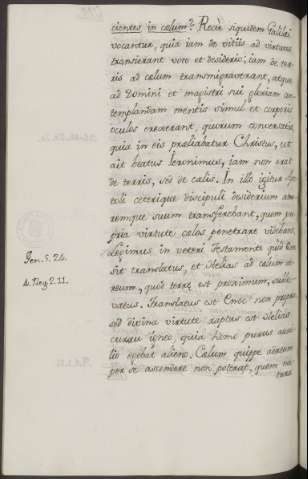 cientes in cælum? Recte siquidem Galilæi
vocantur, quia iam de vitiis ad virtutes
transierant voto et desiderio, iam de ter-
ris ad cælum transmigraverant, atque
ad Domini et magistri sui gloriam con-
templandam mentis simul et corporis
oculos erexerant, quorum conversatio
quia in eis præliabatur Christus, ut
ait beatus Ieronimus, iam non erat
de terris, sed de cælis. In illo igitur
toli ceterique discipuli desiderium
remque suum transferebant, quem pro
pria virtute cælos penetrare videbant.
Legimus in veteri testamento quod Enoc
sit translatus, et Helias ad cælum
reum, quod terræ est proximum, suble
vatus. Translatus est Enoc non propria
sed divina virtute raptus est Helias
curru igneo, quia homo purus auxi
lio opebat alieno. Cælum quippe aereum
per se ascendere non poterat, quem na
tura
Gen. 5. 24.
4. Reg. 2. 11.